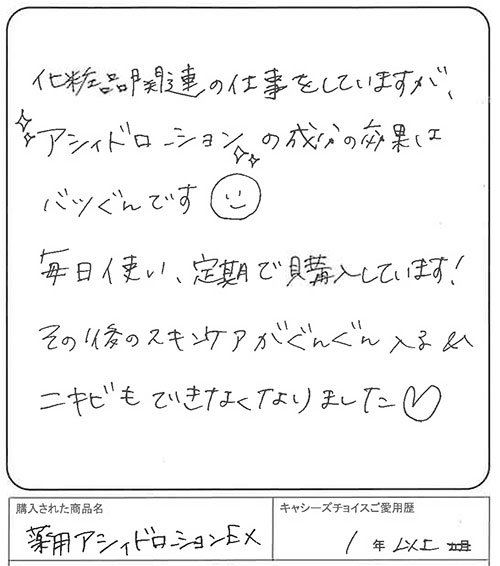 化粧品関連の仕事をしていますが、
アシィドローションの成分の効果は
バツぐんです
毎日使い、定期で購入しています!
その後のスキンケアがぐんぐん入る&
ニキビもできなくなりました♡
購入された商品名
キャシーズチョイスご愛用歴
薬用アシィドローションEX
1年以上